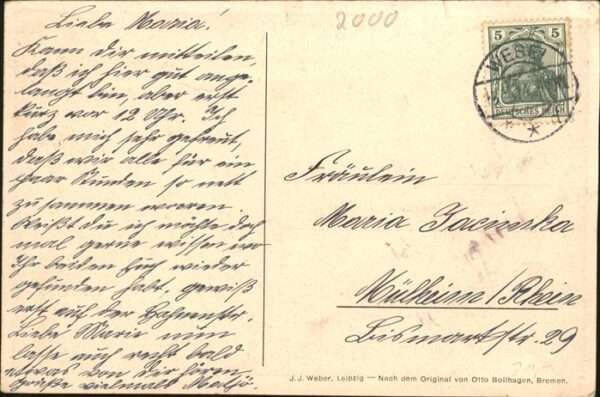 Liebe Maria!
Kann dir mitteilen,
daß ich hier gut ange-
langt bin, aber erst
kurz vor 12 Uhr. Ich
habe mich sehr gefreut,
daß wir alle für ein
paar Stunden so nett
zusammen waren
Weißt du ich möchte doch
mal gerne wissen wo
Ihr beiden Euch wieder
gefunden habt. gewiß
erst auf der Bahnenstr.
Liebe Marie nun
lasse auch recht bald
etwas von dir hören
Grüße vielmals
2000
5 5
WESEL
DEUTSCHES REICH
Fräulein
Maria Jacinska
Mülheim/Rhein
Bismarkstr. 29
J. J. Weber, Leipzig — Nach dem Original von Otto Bollhagen, Bremen.